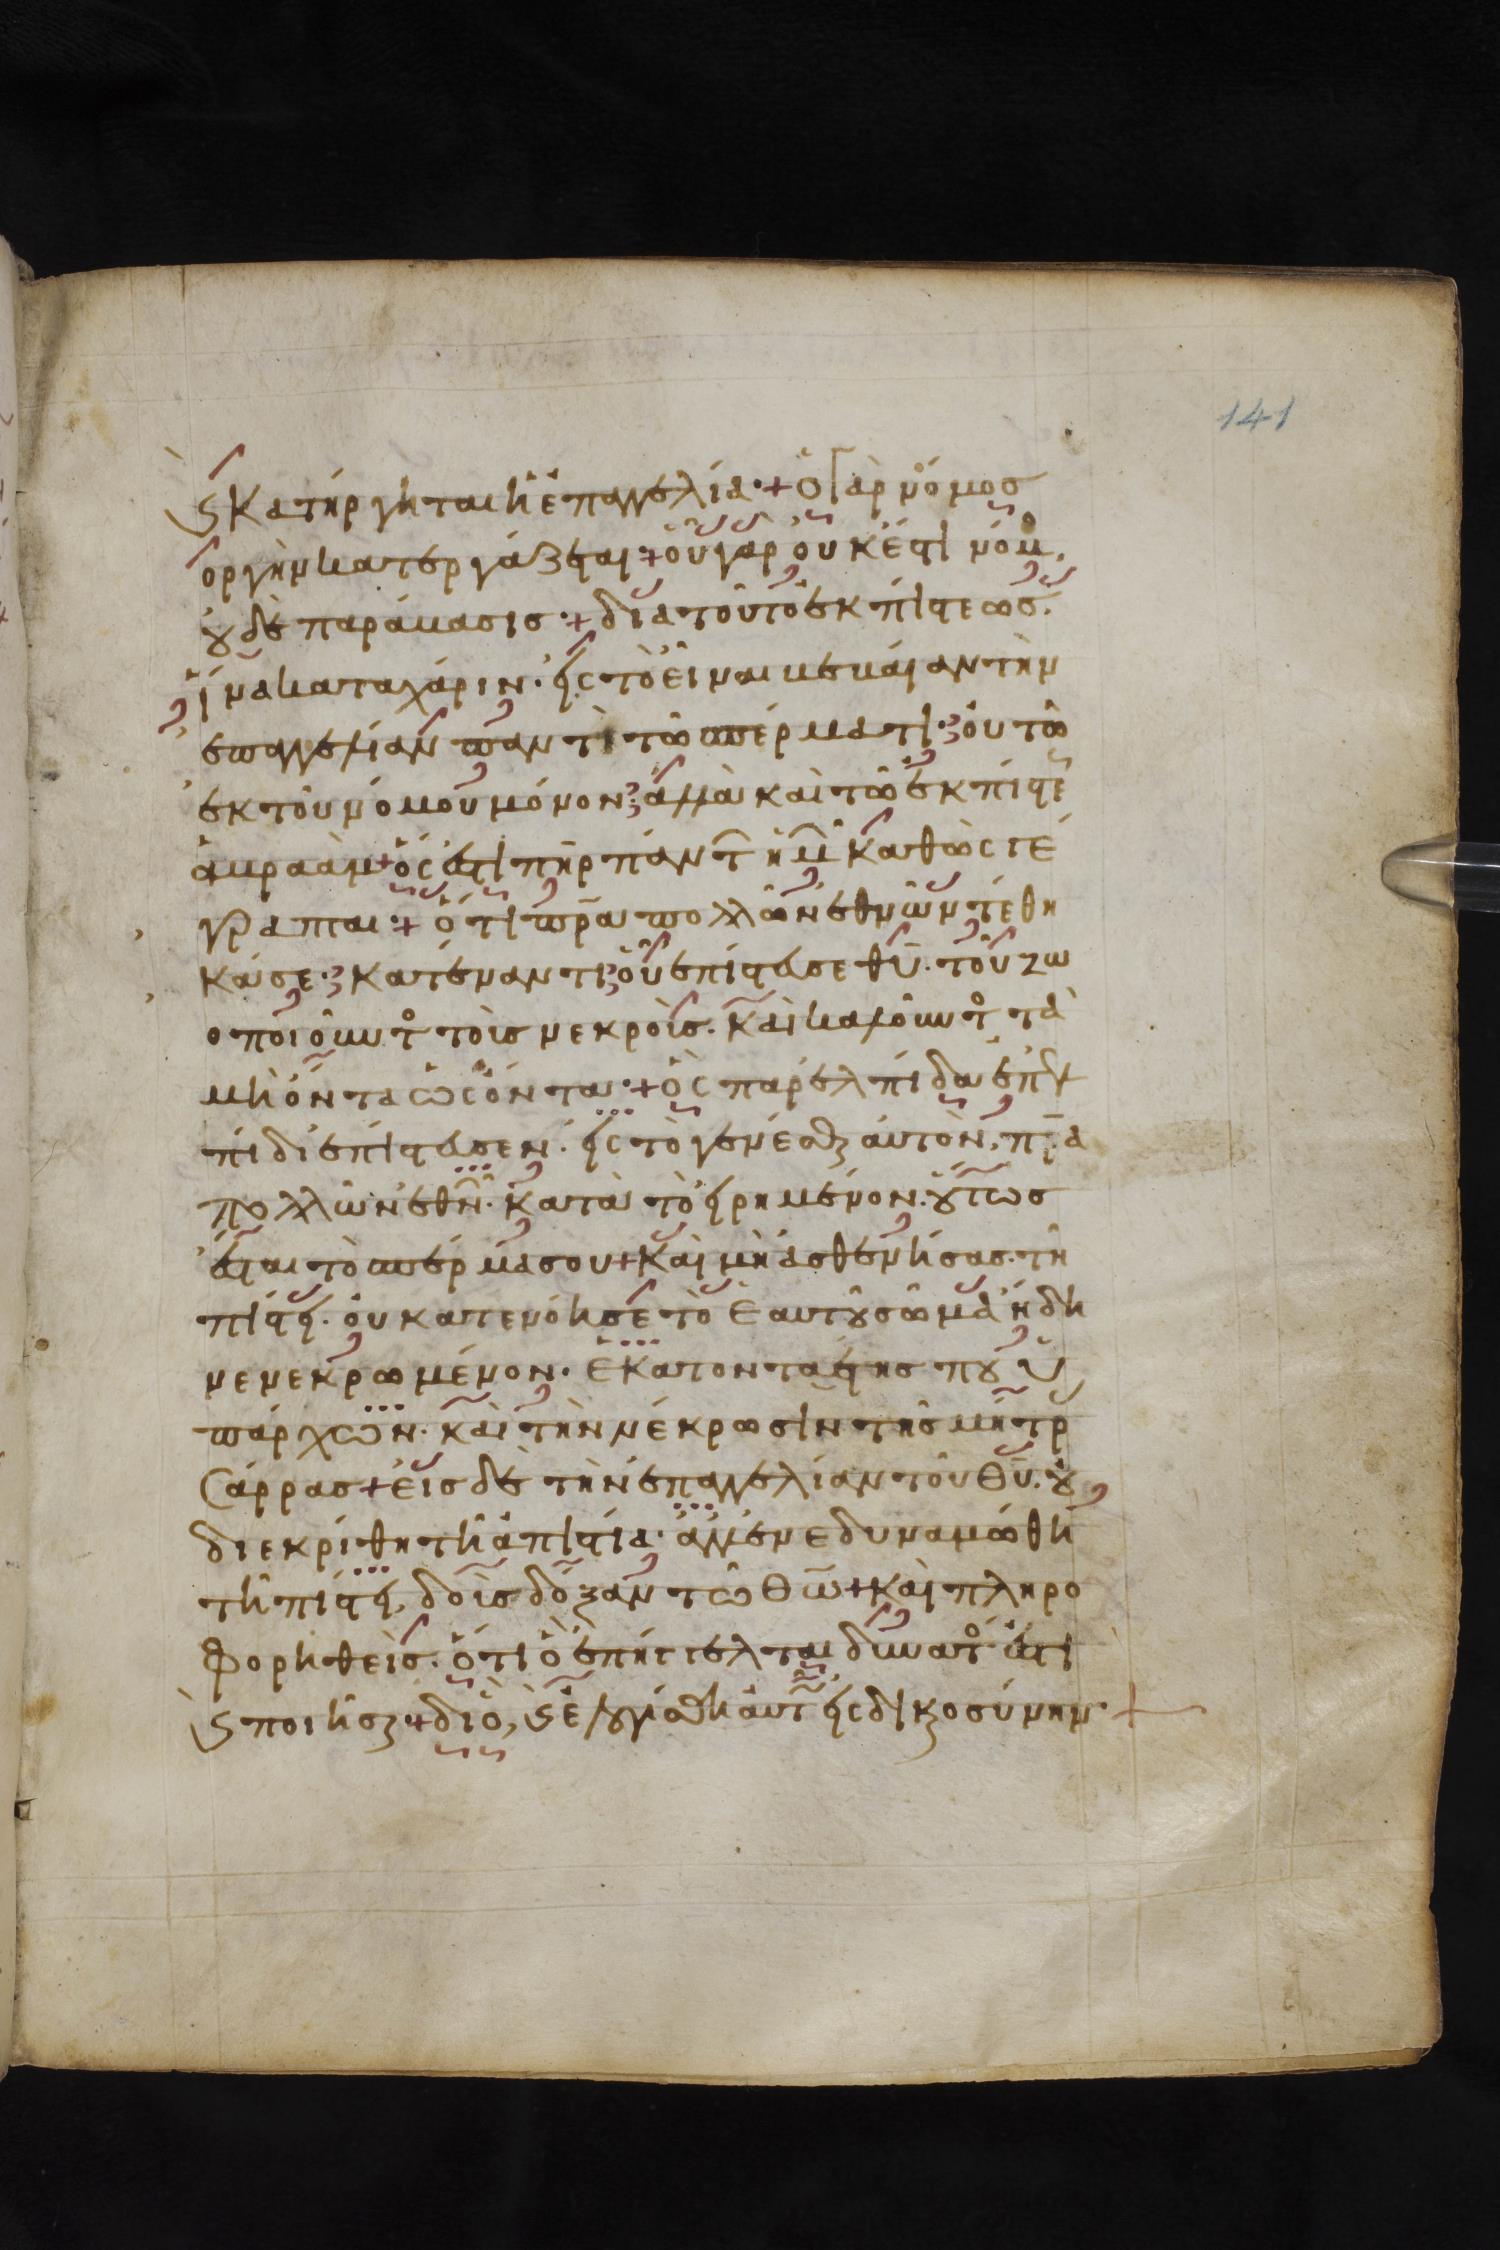 141
ϗ κατήργηται ἡ ἐπαγγελία·+ ὁ γὰρ νόμοσ
ὀργὴν κατεργάζεται·+ οὗ γὰρ οὐκ ἔστι νόμ,
ουδὲ παράβασισ·+ διατοῦτο ἐκ πίστεωσ·
ἵνα κατα χάριν· εἰς τὸ εἶναι βεβαίαν τὴν
ἐπαγγελίαν παντὶ τῶ σπέρματι· οὐ τῶ
ἐκ τοῦ νόμου μόνον· ἀλλὰ καὶ τῶ ἐκ πίστε
ἀβραάμ+ ὅς ἐστι πηρ πάντ ἡμ καθὼς γέ
γραπται·+ ὅτι πρα πολλῶν ἐθνῶν τέθη
κά σε· κατέναντι οὗ ἐπίστευσε θυ· τοῦ ζω
οποιοῦντ τοὶσ νεκροὶσ· καὶ καλοῦντ τὰ
μὴ ὄντα ὡς ὄντα·+ ὃς παρ ἐλπίδα ἐπ ελ
πίδι ἐπίστευσεν· εἰς τὸ γενέσθαι αὐτὸν, πρα
πολλῶν ἐθν· κατὰ τὸ εἰρημένον· οὕτωσ
ἔσται τὸ σπέρμα σου+ Καὶ μὴ ἀσθενήσασ τῆ
πίστει· οὐ κατενόησε τὸ ἑαυτοῦ σῶμα ἤδη
νενεκρωμένον· ἑκατονταέτησ που ὑ
πάρχων· καὶ τὴν νέκρωσιν τῆσ μήτρ
Σάρρασ+ εἰσ δὲ τὴν ἐπαγγελίαν τοῦ θυ· οὐ
διεκρίθη τῆ ἀπιστία· ἀλλ ἐνεδυναμώθη
τῆ πίστει, δοὺσ δόξαν τῶ θω+ καὶ πληρο
φορηθεὶσ· ὅτι ὃ ἐπήγγελται δυνατ ἐστι
ϗ ποιῆσαι·+ διὸ, ϗ ἐλογίσθη αὐτ εἰς δικαιοσύνην·+